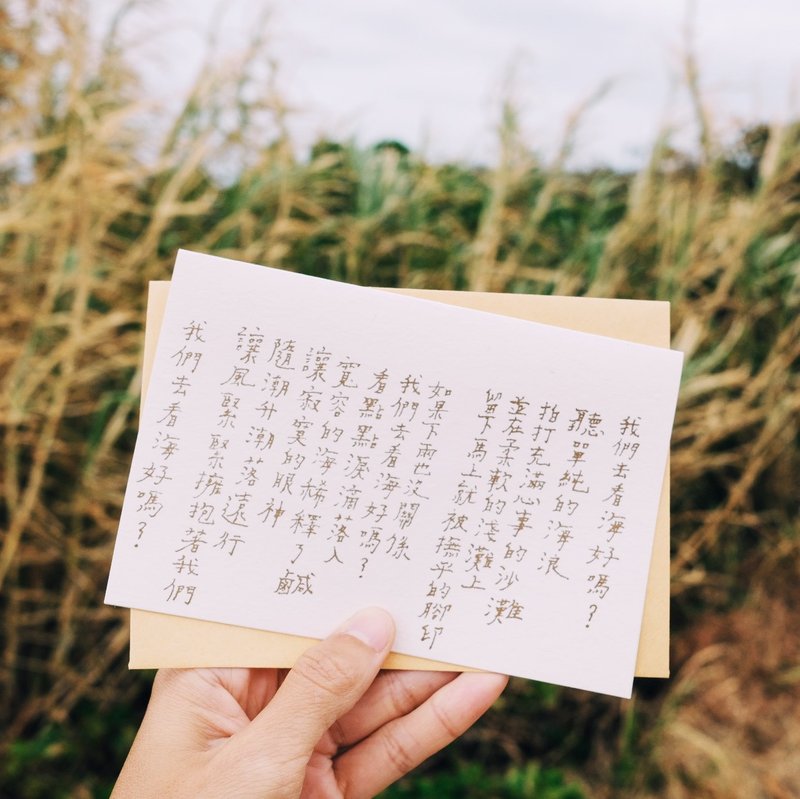 我們去看海好嗎?
聽單純的海浪
拍打充滿心事的沙灘
並在柔軟的淺灘上
留下馬上就被撫平的腳印
如果下雨也沒關係
我們去看海好嗎?
看點點淚滴落入
寬容的海稀釋了鹹
讓寂寞的眼神
隨潮升潮落遠行
讓風緊緊擁抱著我們
我們去看海好嗎?